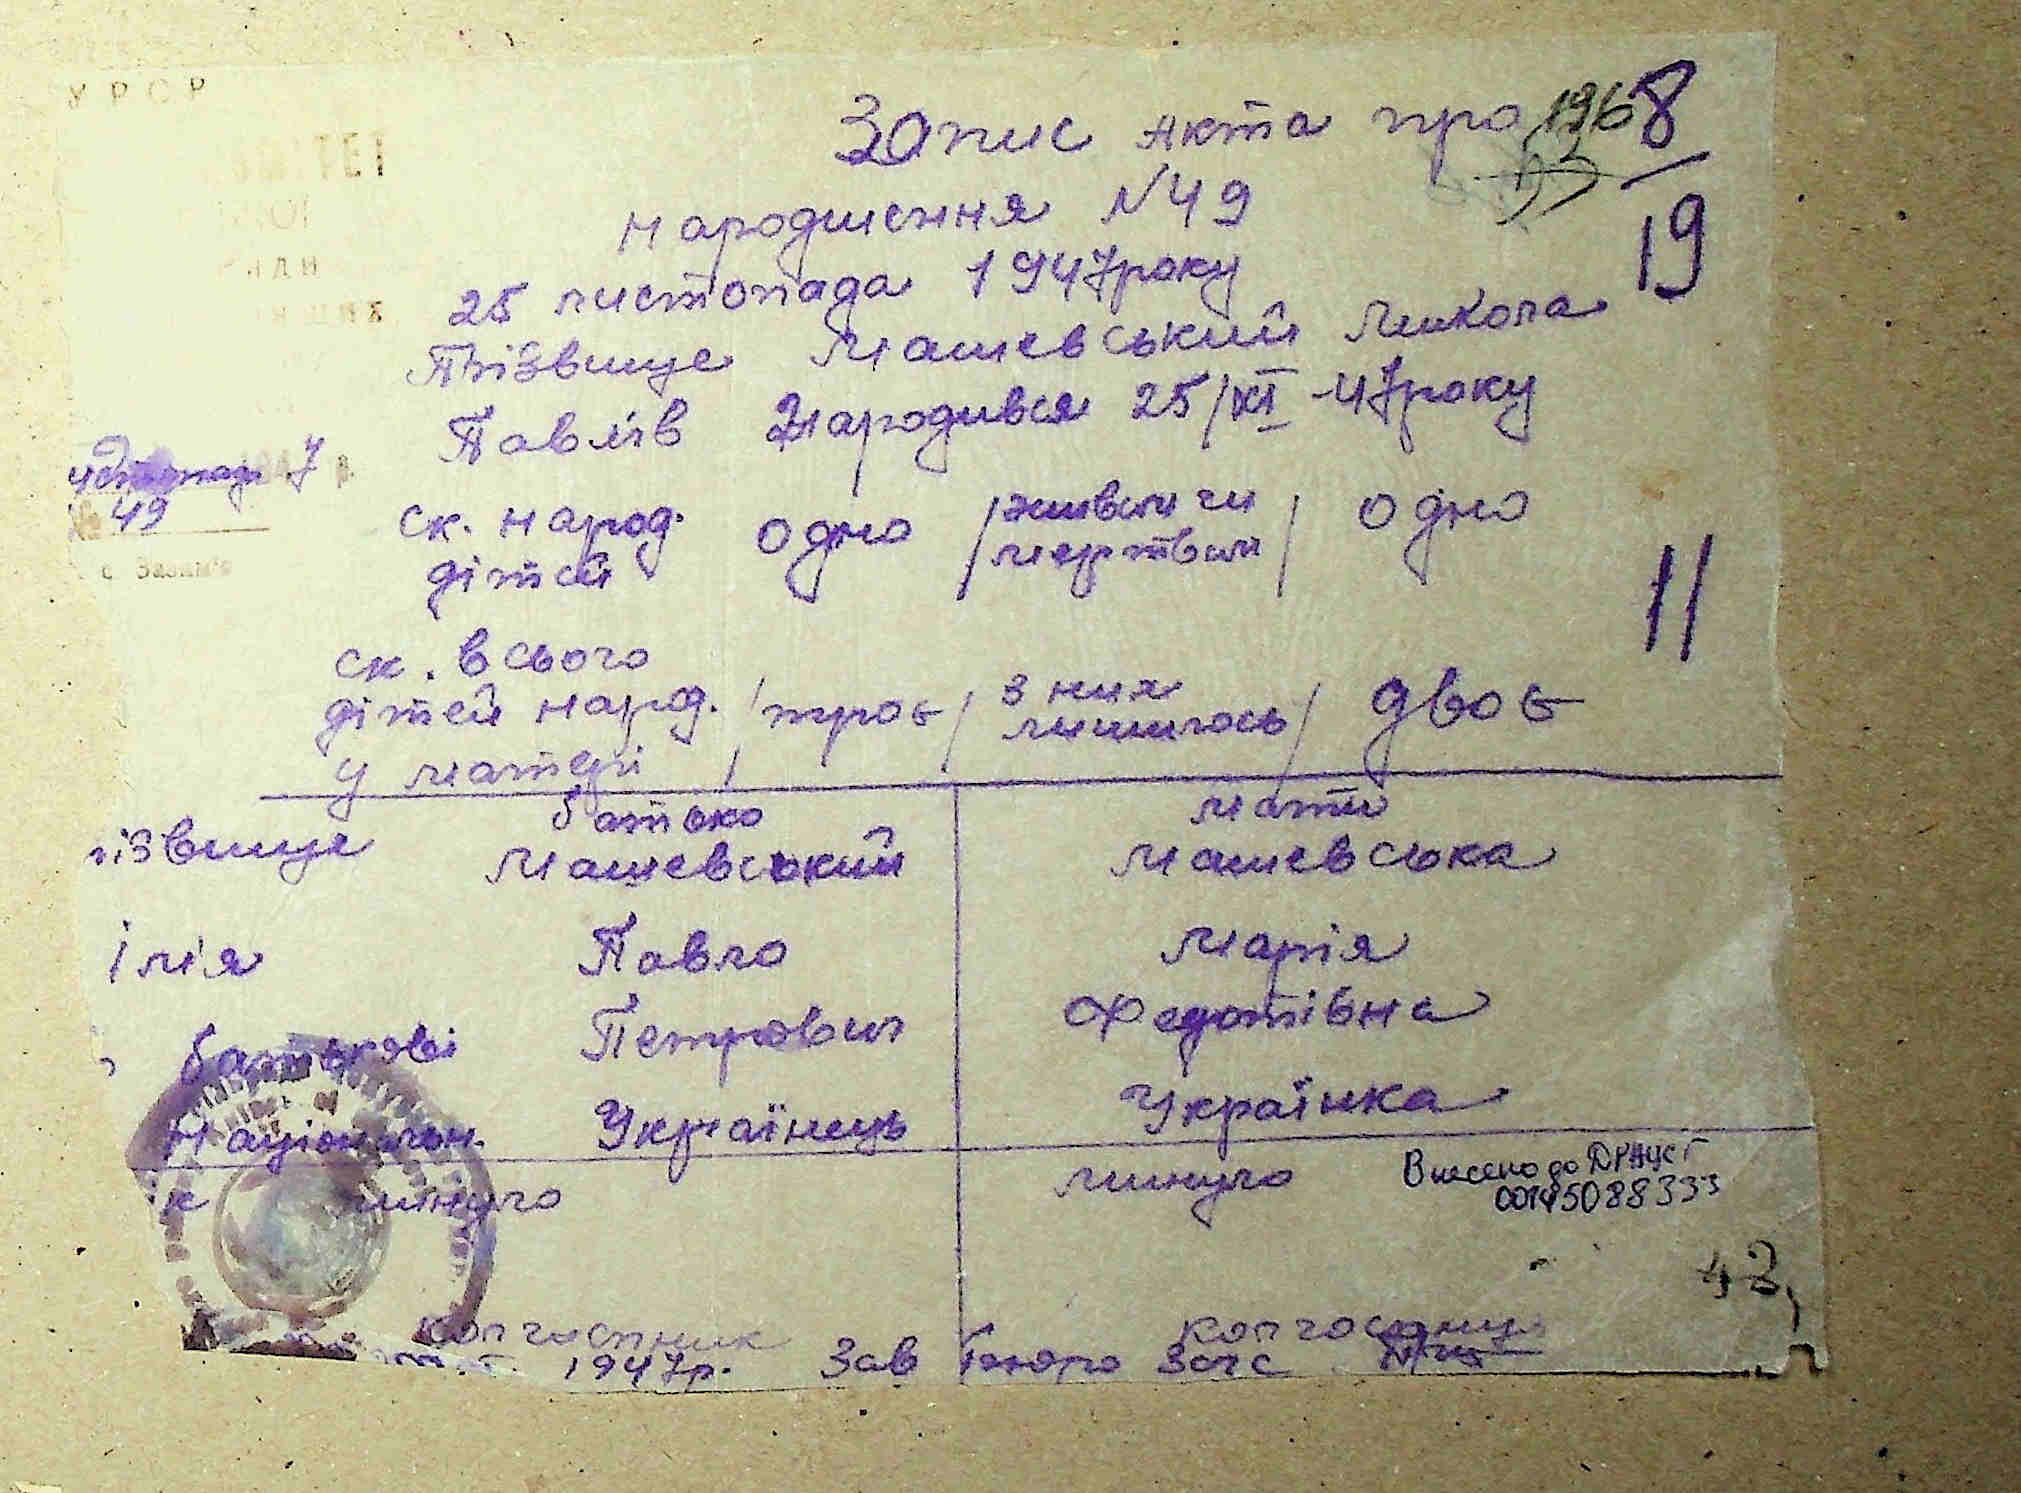 УРСР
Запис акта про 1968
народження N 49
19
25 листопада 1947 року
Прізвище Машевський Микола
Павлів Народився 25/XI 47 року
7
№ 49
ск. народ. дітей одно / живым чи мертвым / одно
11
ск. всього
дітей народ. / троє / з них лишилось / двоє
у матері
батько мати
різвище Машевський Машевська
Імія Павло Марія
батькові Петрович Федотівна
Національн. Українець Українка
ік минуло минуло
Внесено до ДРАЦСГ
00145088333
43
колгоспник колгосpниця
1947р. Зав бюро Загс